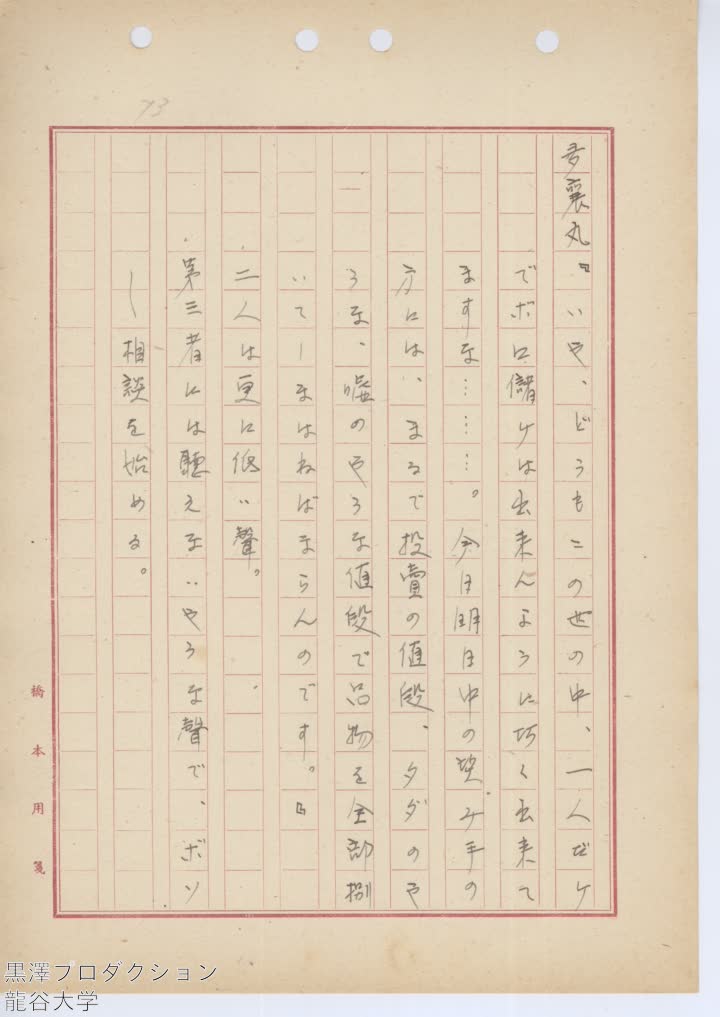 73
多襄丸『いや、どうもこの世の中、一人だけ
でボロ儲けは出来んように巧く出来て
ますな………。今日明日中の望み手の
方には、まるで投賣の値段、タダのや
うな、嘘のやうな値段で品物を全部捌
いてしまはねばならんのです。』
二人は更に低い聲。
第三者には聽えないやうな聲で、ボソ
〱相談を始める。
橋本用箋
黒澤プロダクション
龍谷大学